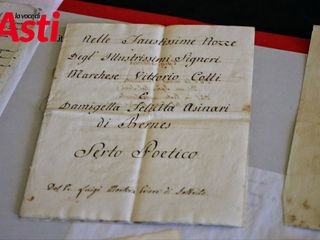 la voce di
Asti.it
Nelle Faustissime Nozze
Degl' Illustrissimi Signori
Marchese Vittorio Colli
E
Damigella Felicita Asinari
di Bernes
Serto Poetico
Del Luigi